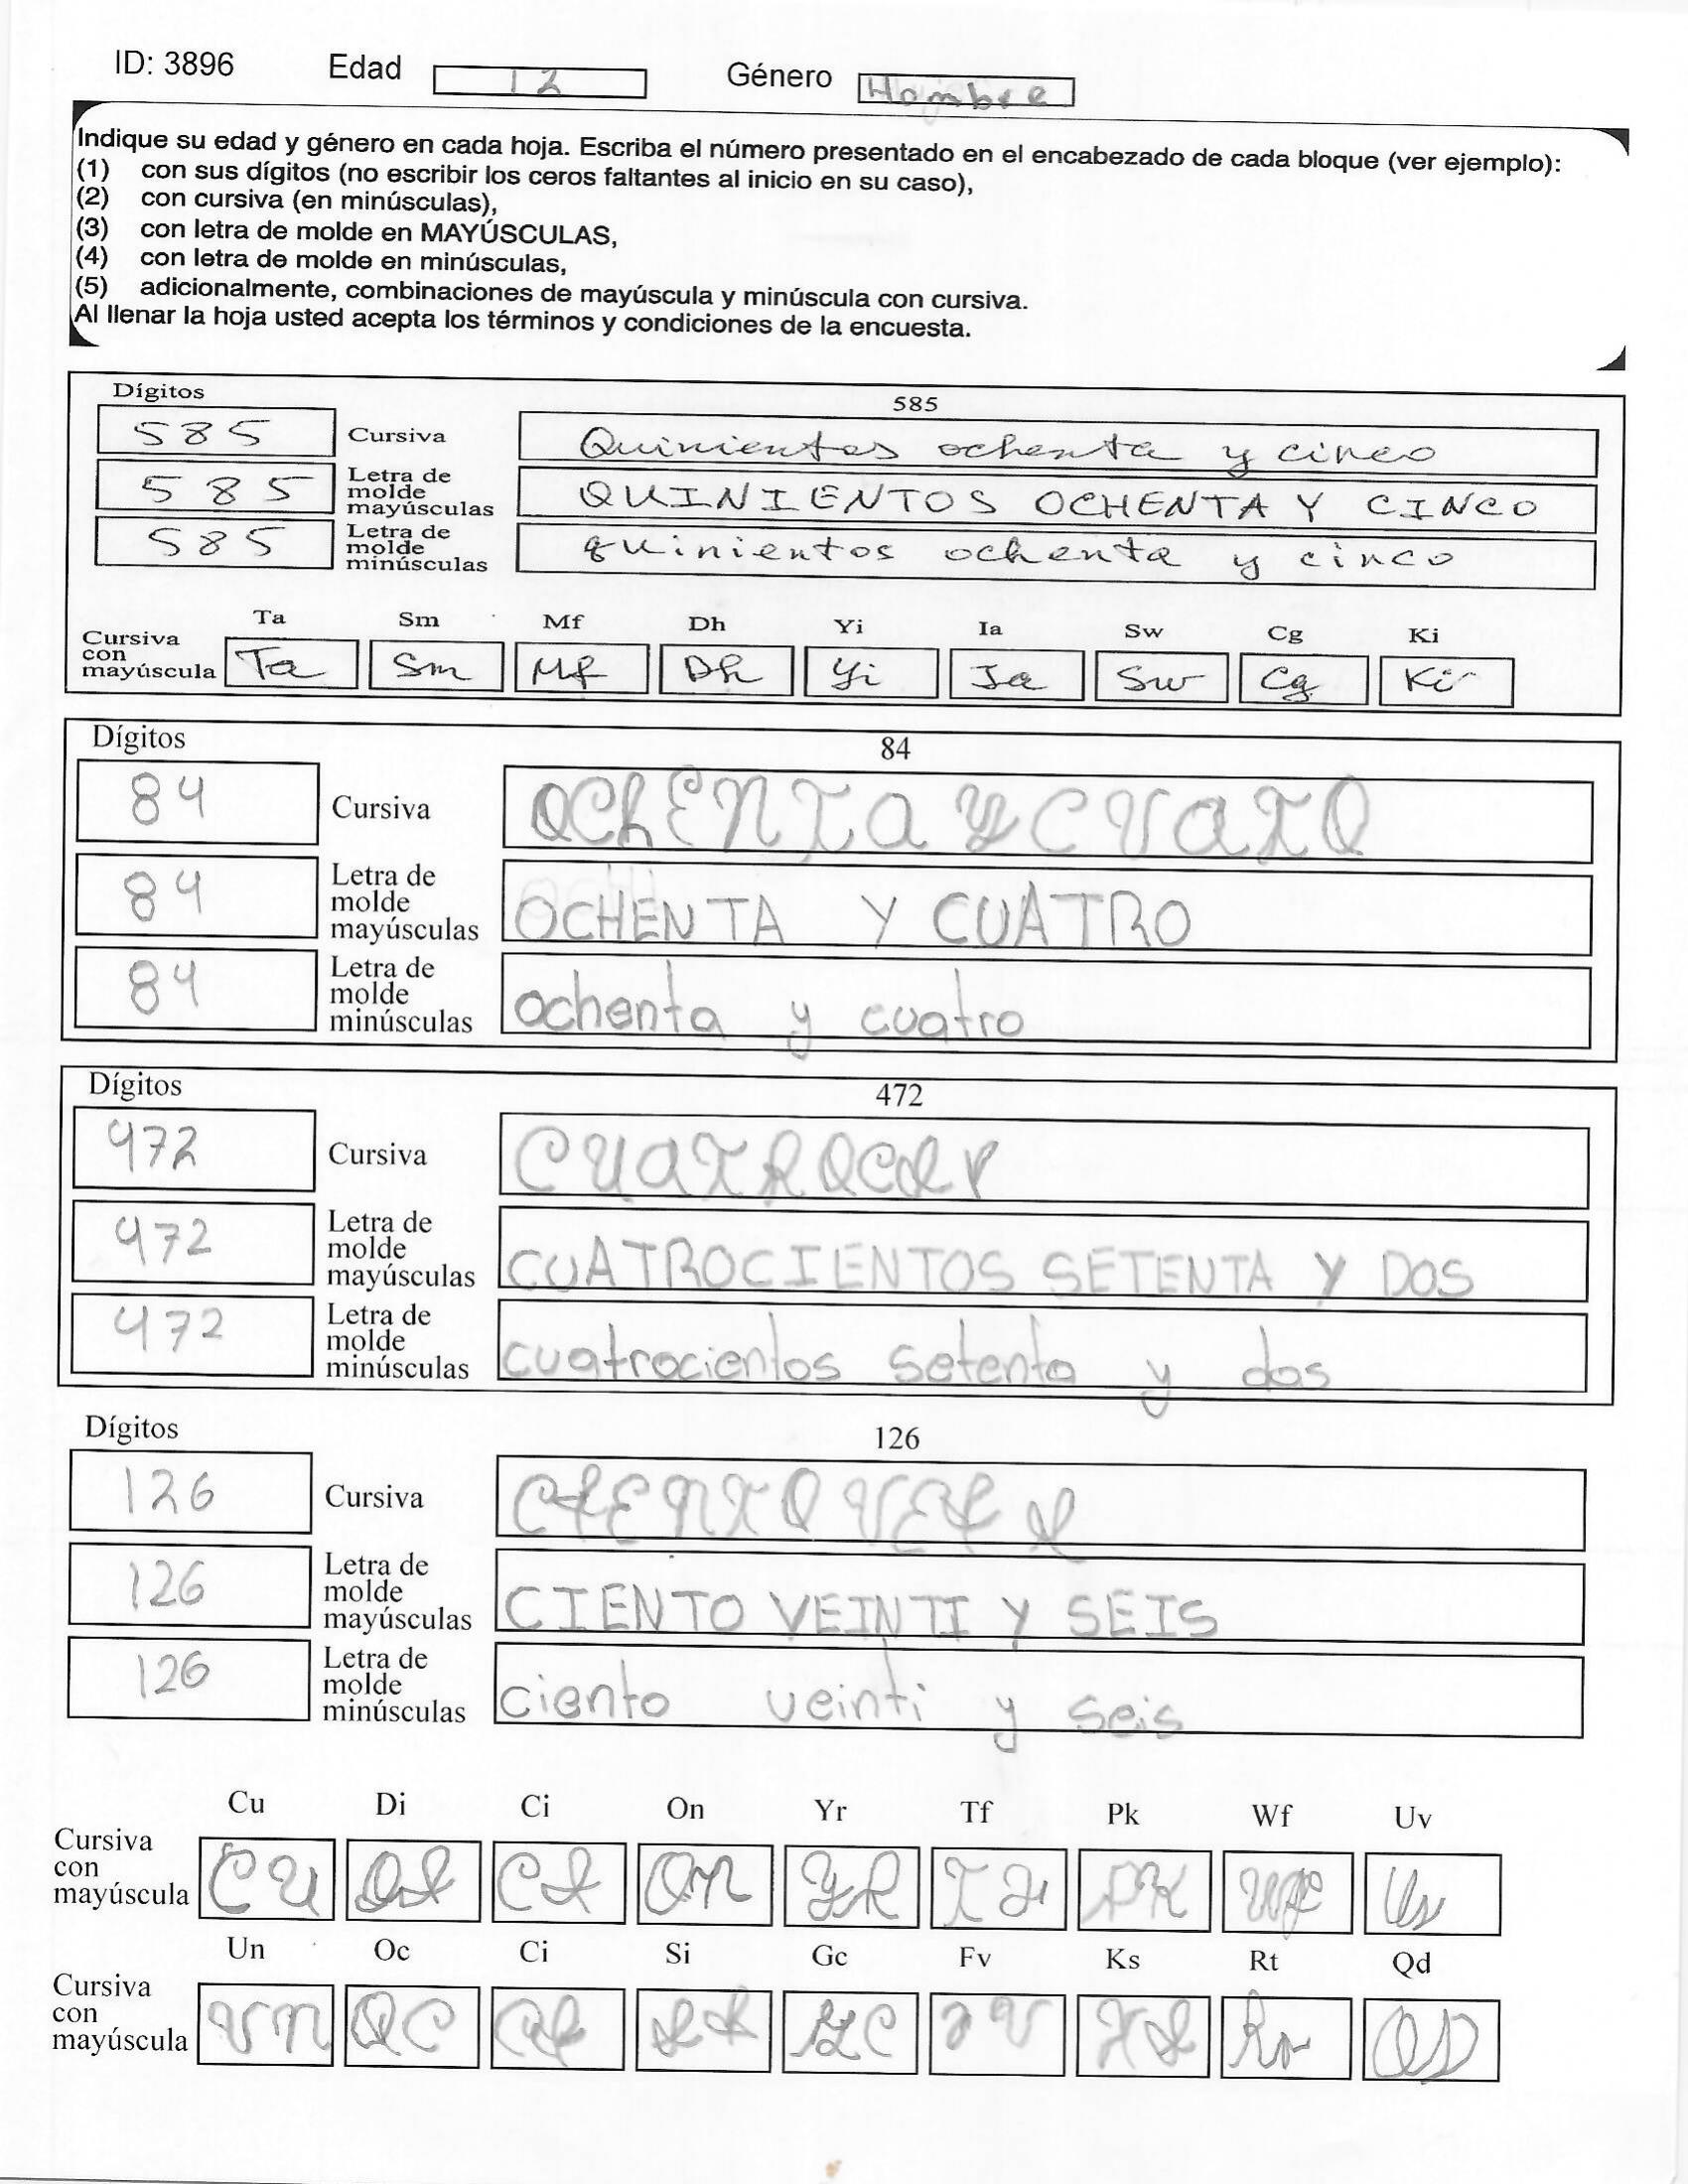 ID: 3896 Edad 12 Género Hombre
Indique su edad y género en cada hoja. Escriba el número presentado en el encabezado de cada bloque (ver ejemplo):
(1) con sus dígitos (no escribir los ceros faltantes al inicio en su caso),
(2) con cursiva (en minúsculas),
(3) con letra de molde en MAYÚSCULAS,
(4) con letra de molde en minúsculas,
(5) adicionalmente, combinaciones de mayúscula y minúscula con cursiva.
Al llenar la hoja usted acepta los términos y condiciones de la encuesta.
Dígitos 585
585 Cursiva Quinientos ochenta y cinco
585 Letra de molde mayúsculas QUINIENTOS OCHENTA Y CINCO
585 Letra de molde minúsculas quinientos ochenta y cinco
Ta Sm Mf Dh Yi Ia Sw Cg Ki
Cursiva con mayúscula Ta Sm Mf Dh Yi Ia Sw Cg Ki
Dígitos 84
84 Cursiva OChENTA Y CUATO
84 Letra de molde mayúsculas OCHENTA Y CUATRO
84 Letra de molde minúsculas ochenta y cuatro
Dígitos 472
472 Cursiva
472 Letra de molde mayúsculas CUATROCIENTOS SETENTA Y DOS
472 Letra de molde minúsculas cuatrocientos setenta y dos
Dígitos 126
126 Cursiva CIENTO
126 Letra de molde mayúsculas CIENTO VEINTI Y SEIS
126 Letra de molde minúsculas ciento veinti y seis
Cu Di Ci On Yr Tf Pk Wf Uv
Cursiva con mayúscula CU DI CI On YR TF PK Wf Uv
Un Oc Ci Si Gc Fv Ks Rt Qd
Cursiva con mayúscula UN OC CI SI GC FV KS QD